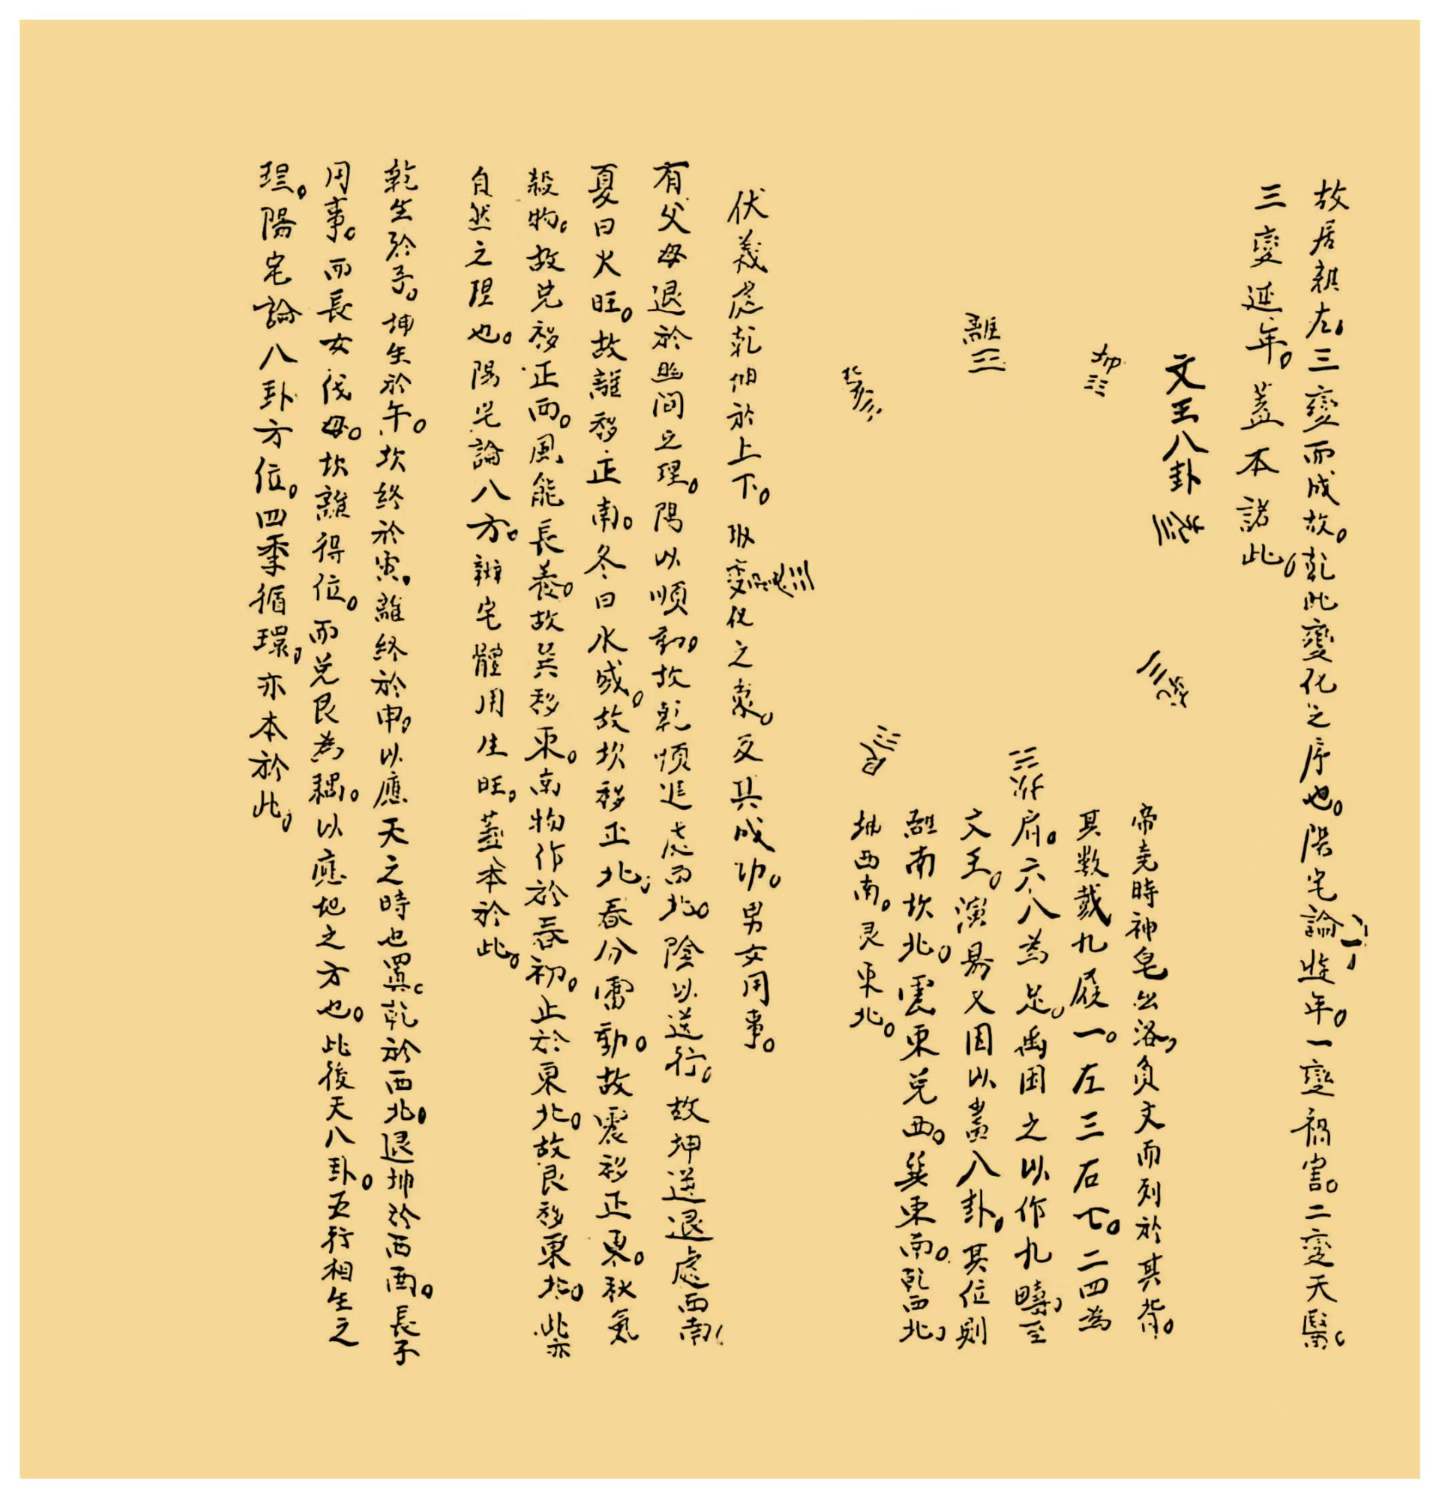 故居親左三變而成故。乾此變化之序也。陽宅論遊年。一變禍害。二變天醫。
三變延年。蓋本諸此。
文王八卦
乾
坤
離
巽
震
兌
艮
坎
帝堯時神龜出洛，負文而列於其背。
其數戴九履一。左三右七。二四為
肩。六八為足。禹因之以作九疇，至
文王。演易又因以畫八卦。其位則
離南坎北。震東兌西。巽東南。乾西北，
坤西南。艮東北。
伏羲處乾坤於上下。取變化之象。文其成功。男女用事。
有父母退於無間之理。陽以順動。故乾順進處西北。陰以逆行。故坤逆退處西南
夏日火旺。故離移正南。冬日水盛。故坎移正北。春分雷動。故震移正東。秋氣
殺物。故兌移正西。風能長養。故巽移東。南物作於春初。止於東北。故艮移東北。此亦
自然之理也。陽宅論八方。辨宅體用生旺。蓋本於此。
乾生於子。坤生於午。坎終於寅。離終於申。以應天之時也。置乾於西北。退坤於西南。長子
用事。而長女代母。坎離得位。而兌艮為耦。以應地之方也。此後天八卦。五行相生之
理。陽宅論八卦方位。四季循環。亦本於此。